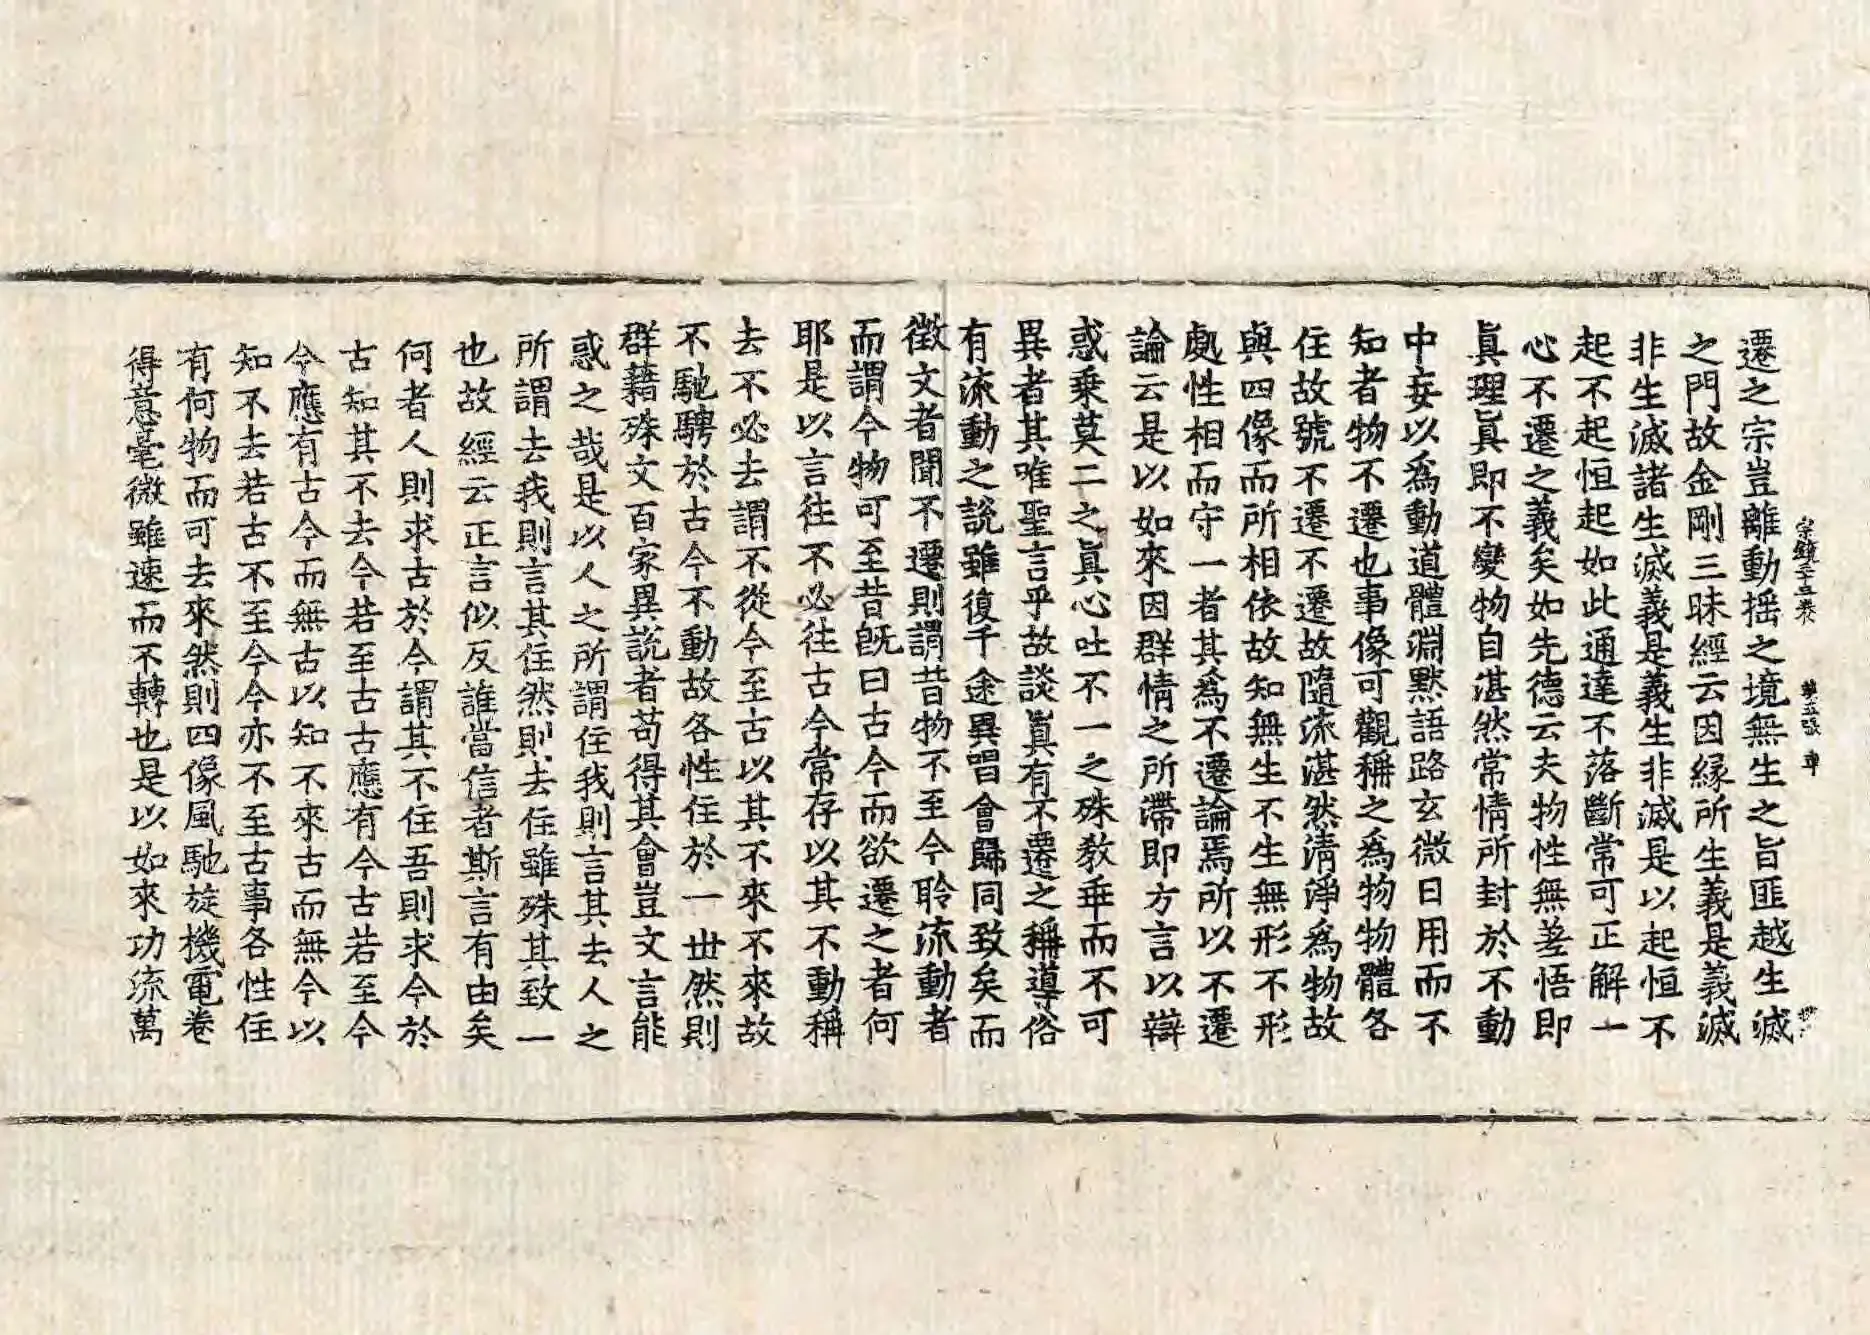 宗鏡三十三卷 第五張 車
遷之宗豈離動搖之境無生之旨匪越生滅
之門故金剛三昧經云因緣所生義是義滅
非生滅諸生滅義是義生非滅是以起恒不
起不起恒起如此通達不落斷常可正解一
心不遷之義矣如先德云夫物性無差悟即
眞理眞即不變物自湛然常情所封於不動
中妄以爲動道體淵默語路玄微日用而不
知者物不遷也事像可觀稱之爲物物體各
住故號不遷不遷故隨流湛然清淨爲物故
與四像而所相依故知無生不生無形不形
處性相而守一者其爲不遷論焉所以不遷
論云是以如來因群情之所滯即方言以辯
惑乗莫二之眞心吐不一之殊教乖而不可
異者其唯聖言乎故談眞有不遷之稱導俗
有流動之說雖復千途異唱會歸同致矣而
徵文者聞不遷則謂昔物不至今聆流動者
而謂今物可至昔旣曰古今而欲遷之者何
耶是以言往不必往古今常存以其不動稱
去不必去謂不從今至古以其不來不來故
不馳騁於古今不動故各性住於一世然則
群籍殊文百家異說者苟得其會豈文言能
惑之哉是以人之所謂住我則言其去人之
所謂去我則言其住然則去住雖殊其致一
也故經云正言似反誰當信者斯言有由矣
何者人則求古於今謂其不住吾則求今於
古知其不去今若至古古應有今古若至今
今應有古今而無古以知不來古而無今以
知不去若古不至今今亦不至古事各性住
有何物而可去來然則四像風馳旋機電卷
得意毫微雖速而不轉也是以如來功流萬